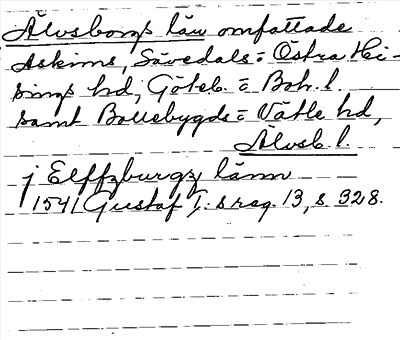 Älvsborgs län omfattade
Askims, Sävedals= Östra Hi-
sings hd, Göteb. o Boh. l.
samt Bollebygds= Vätle hd,
Älvsb. l.
j Elffzburgz länn
1541 Gustaf I: s reg. 13, s 328.